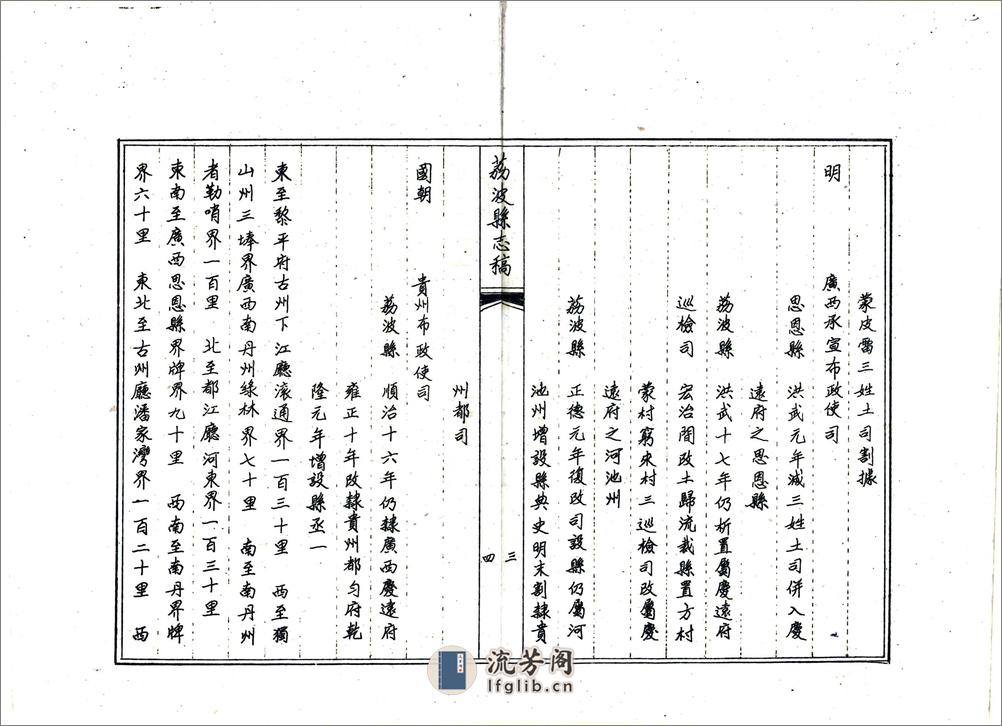 蒙皮雷三姓土司割據
明
廣西承宣布政使司
思恩縣　洪武元年減三姓土司併入慶
遠府之思恩縣
荔波縣　洪武十七年仍析置屬慶遠府
巡檢司　宏治間改土歸流裁縣置方村
蒙村窮來村三巡檢司改屬慶
遠府之河池州
荔波縣　正德元年復改司設縣仍屬河
池州增設縣典史明末割隸貴
荔波縣志稿
三
四
州都司
國朝　貴州布政使司
荔波縣　順治十六年仍隸廣西慶遠府
雍正十年改隸貴州都勻府乾
隆元年增設縣丞一
東至黎平府古州下江廳滚通界一百三十里　西至獨
山州三埲界廣西南丹州綠林界七十里　南至南丹州
者勒哨界一百里　北至都江廳河東界一百三十里
東南至廣西思恩縣界牌界九十里　西南至南丹界牌
界六十里　東北至古州廳潘家灣界一百二十里　西
流芳阁
lfglib.cn